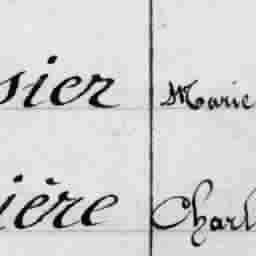 sier Marie
ière Charl